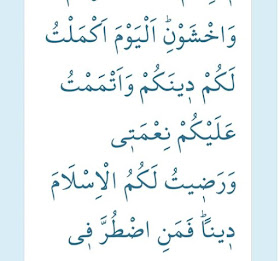 وَاخْشَوْنِۜ اَلْيَوْمَ اَكْمَلْتُ
لَكُمْ د۪ينَكُمْ وَاَتْمَمْتُ
عَلَيْكُمْ نِعْمَت۪ى
وَرَض۪يتُ لَكُمُ الْاِسْلَامَ
د۪يناًۜ فَمَنِ اضْطُرَّ ف۪ى